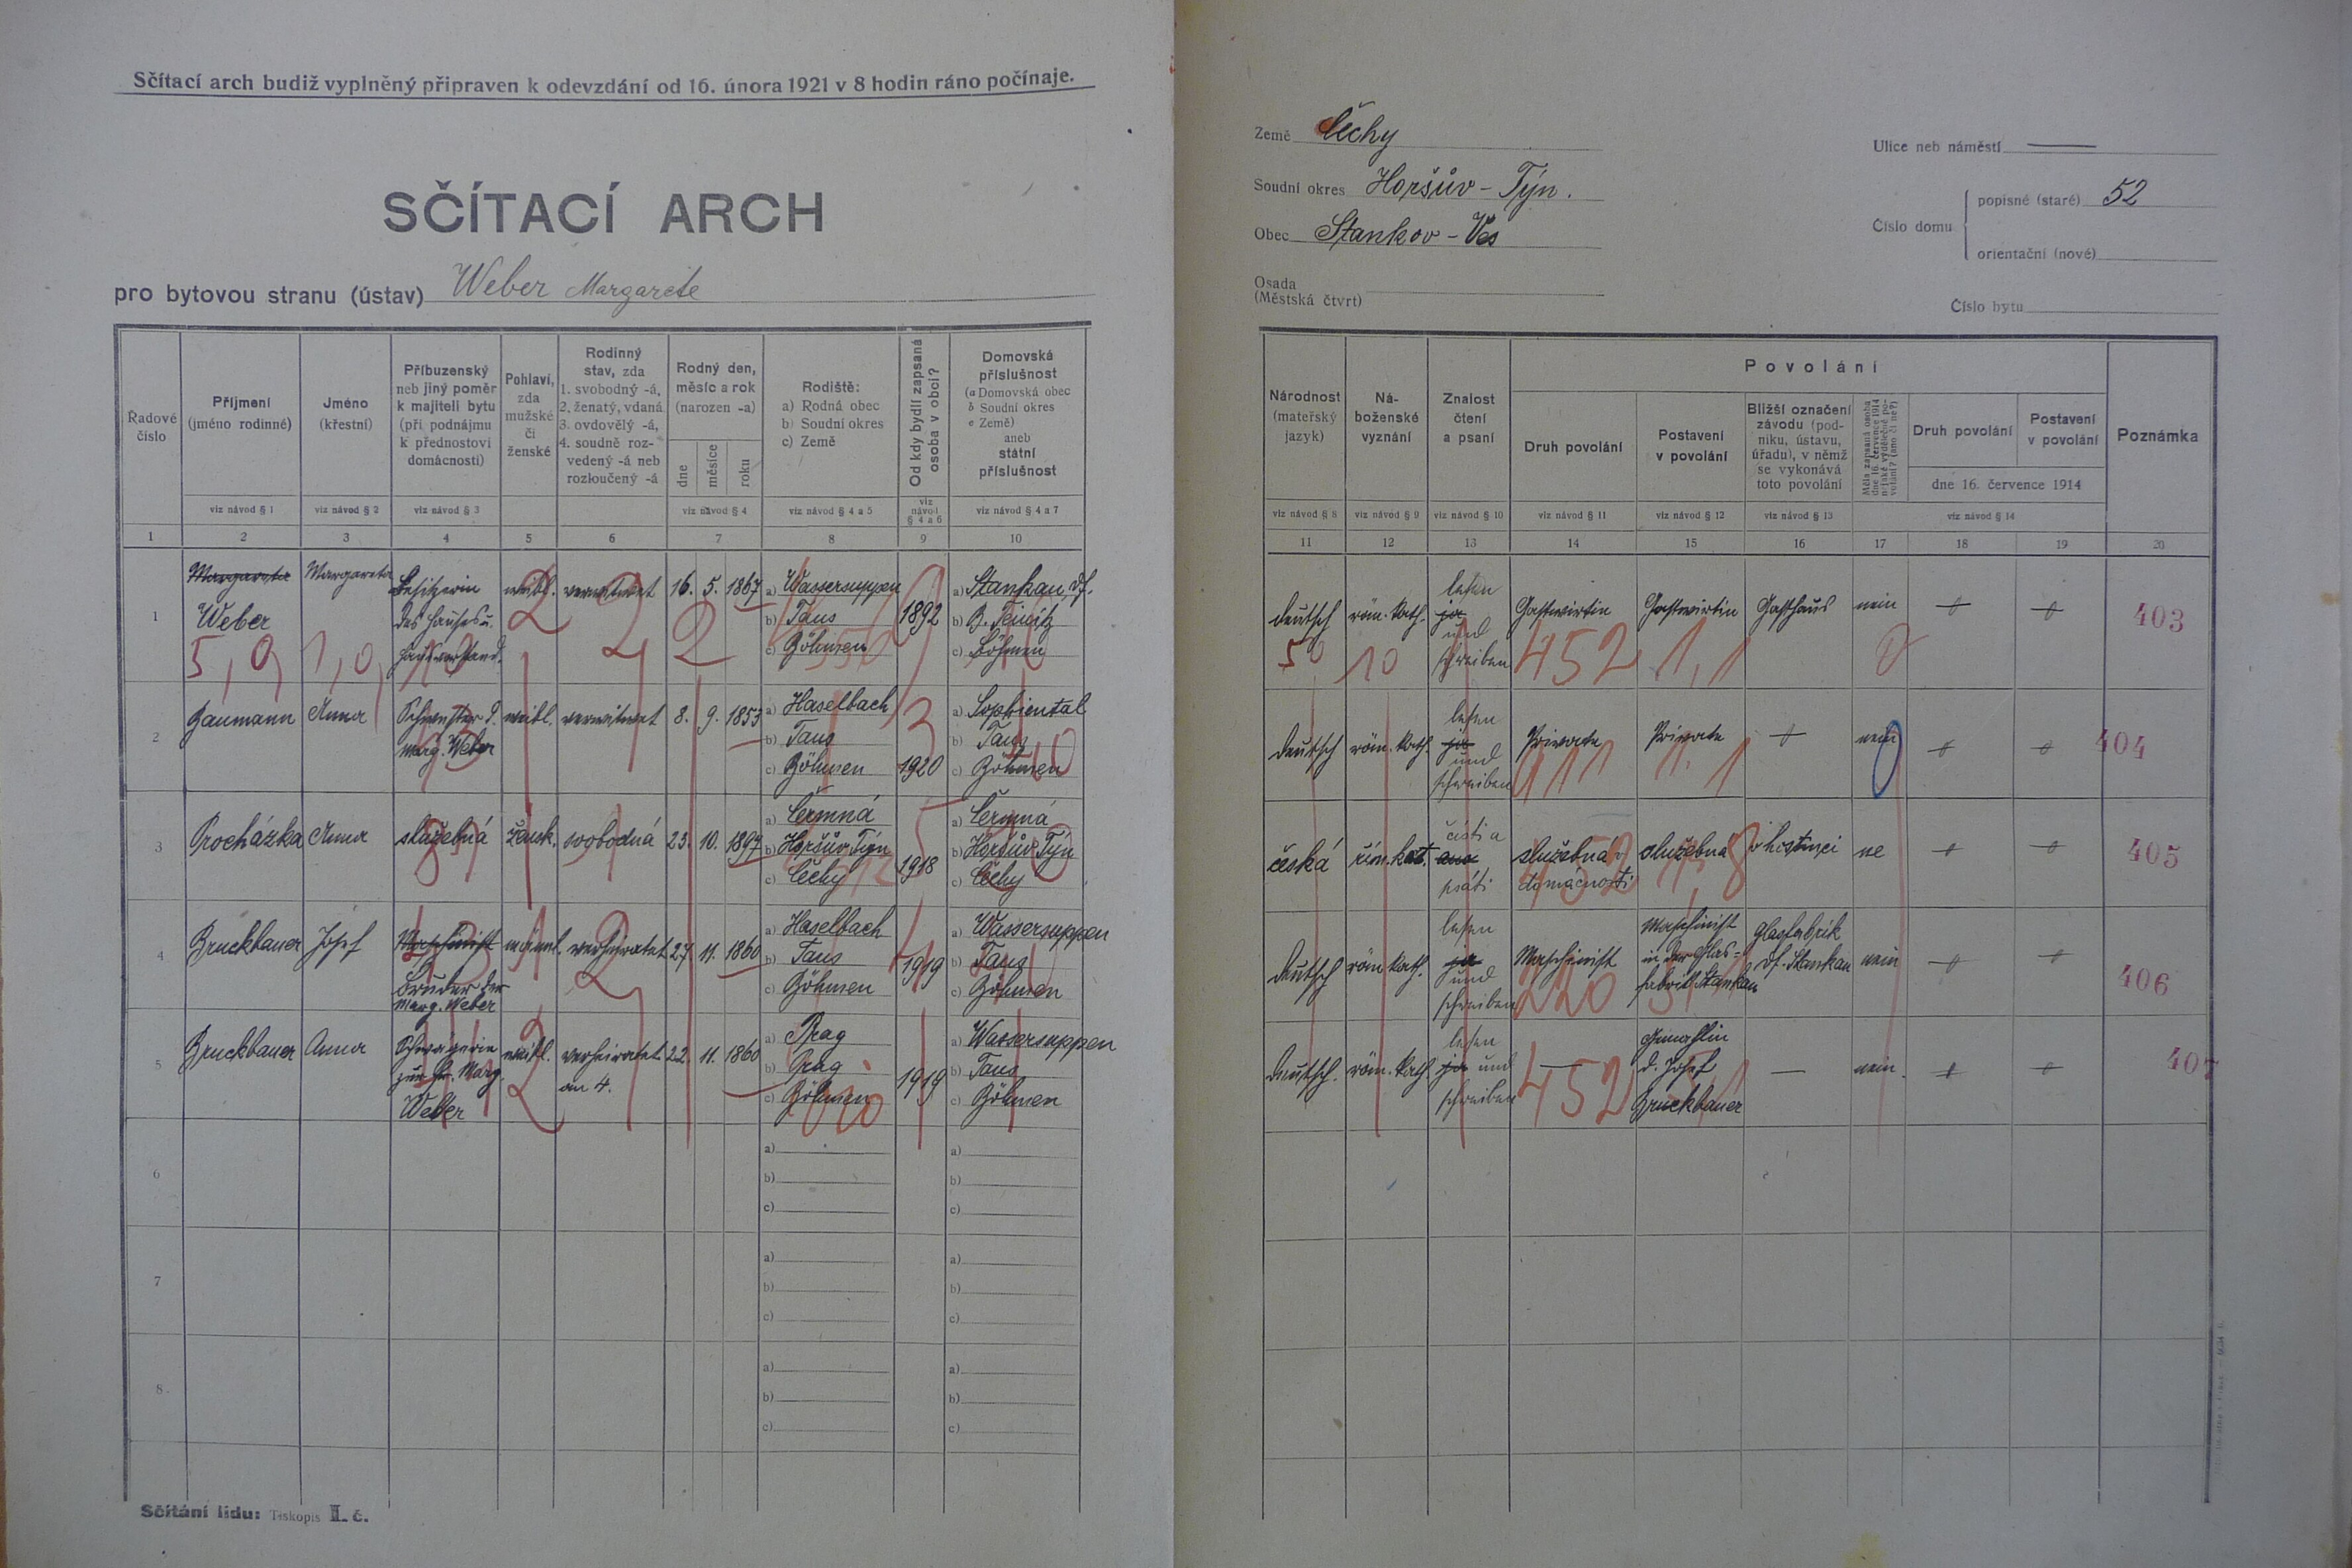 Sčítací arch budiž vyplněný připraven k odevzdání od 16. února 1921 v 8 hodin ráno počínaje.
SČÍTACÍ ARCH
pro bytovou stranu (ústav) Weber Margarete
Země Čechy
Soudní okres Horšův-Týn.
Obec Stankov-Ves
Osada
(Městská čtvrt)
Ulice neb náměstí —
Číslo domu
popisné (staré) 52
orientační (nové)
Číslo bytu
Řadové číslo
Příjmení (jméno rodinné)
Jméno (křestní)
Příbuzenský neb jiný poměr k majiteli bytu (při podnájmu k přednostovi domácnosti)
Pohlaví, zda mužské či ženské
Rodinný stav, zda 1. svobodný -á, 2. ženatý, vdaná 3. ovdovělý -á, 4. soudně rozvedený -á neb rozloučený -á
Rodný den, měsíc a rok (narozen -a)
dne měsíce roku
Rodiště: a) Rodná obec b) Soudní okres c) Země
Od kdy bydlí zapsaná osoba v obci?
Domovská příslušnost (a Domovská obec b Soudní okres c Země) aneb státní příslušnost
viz návod § 1 viz návod § 2 viz návod § 3 viz návod § 4 viz návod § 4 a 5 viz návod § 4 a 6 viz návod § 4 a 7
1 2 3 4 5 6 7 8 9 10
Národnost (mateřský jazyk)
Náboženské vyznání
Znalost čtení a psaní
Povolání
Druh povolání
Postavení v povolání
Bližší označení závodu (podniku, ústavu, úřadu), v němž se vykonává toto povolání
Měla zapsaná osoba dne 16. července 1914 nějaké výdělečné povolání? (ano či ne?)
Druh povolání
Postavení v povolání
dne 16. července 1914
Poznámka
viz návod § 8 viz návod § 9 viz návod § 10 viz návod § 11 viz návod § 12 viz návod § 13 viz návod § 14
11 12 13 14 15 16 17 18 19 20
1 Margareta Weber Margareta Besitzerin des Hauses u. Hausvorstand. weibl. verwitwet 16. 5. 1867
a) Wassersuppen b) Taus c) Böhmen 1892 a) Stankau, Df. b) B. Teinitz c) Böhmen
deutsch röm. kath. lesen ja und schreiben Gastwirtin Gastwirtin Gasthaus nein 403
5 0 1 0 10 2 2 2 50 10 452 1,1 0
2 Baumann Anna Schwester d. Marg. Weber weibl. verwitwet 8. 9. 1853
a) Haselbach b) Taus c) Böhmen 1920 a) Sophiental b) Taus c) Böhmen
deutsch röm. kath lesen ja und schreiben Private Private nein 404
911 1.1 0
3 Procházka Anna služebná žensk. svobodná 23. 10. 1897
a) Čermná b) Horšův Týn c) Čechy 1918 a) Čermná b) Horšův Týn c) Čechy
česká řím. kat. čísti a ano psáti služebná v domácnosti služebná v hostinci ne 405
4 Bruckbauer Josef Maschinist Bruder der Marg. Weber männl. verheiratet 27. 11. 1860
a) Haselbach b) Taus c) Böhmen 1919 a) Wassersuppen b) Taus c) Böhmen
deutsch röm kath. lesen ja und schreiben Maschinist Maschinist in der Glasfabrik Stankau Glasfabrik Df. Stankau nein 406
220
5 Bruckbauer Anna Schwägerin zur Fr. Marg. Weber weibl. verheiratet an 4. 22. 11. 1860
a) Prag b) Prag c) Böhmen 1919 a) Wassersuppen b) Taus c) Böhmen
deutsch. röm. kath lesen ja und schreiben — Gemahlin d. Josef Bruckbauer — nein. 407
452
6 a) b) c) a) b) c)
7 a) b) c) a) b) c)
8 a) b) c) a) b) c)
Sčítání lidu: Tiskopis II. č.